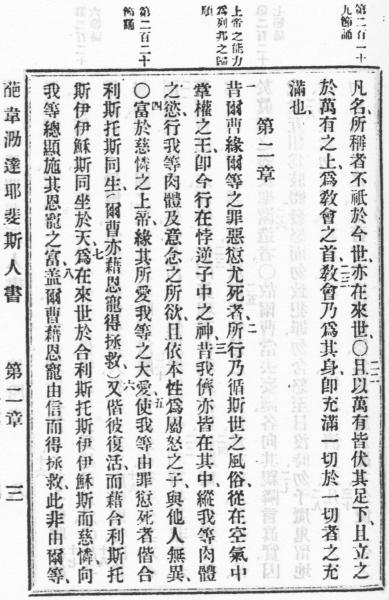 第二百一十
九節誦
上帝之能力
爲列邦之歸
順
第二百二十
節誦
凡名所稱者不祇於今世亦在來世〇且以萬有皆伏其足下且立之
於萬有之上爲教會之首教會乃爲其身卽充滿一切於一切者之充
滿也
第二章
昔爾曹緣爾等之罪惡愆尤死者所行乃循斯世之風俗從在空氣中
掌權之王卽今行在悖逆子中之神昔我儕亦皆在其中縱我等肉體
之慾行我等肉體及意念之所欲且依本性爲屬怒之子與他人無異
〇富於慈憐之上帝緣其所愛我等之大愛使我等由罪愆死者偕合
利斯托斯同生（爾曹亦藉恩寵得拯救）又偕彼復活而藉合利斯托
斯伊伊穌斯同坐於天爲在來世於合利斯托斯伊伊穌斯而慈憐向
我等總顯施其恩寵之富盖爾曹藉恩寵由信而得拯救此非由爾等
葩韋泐達耶斐斯人書　第二章　三